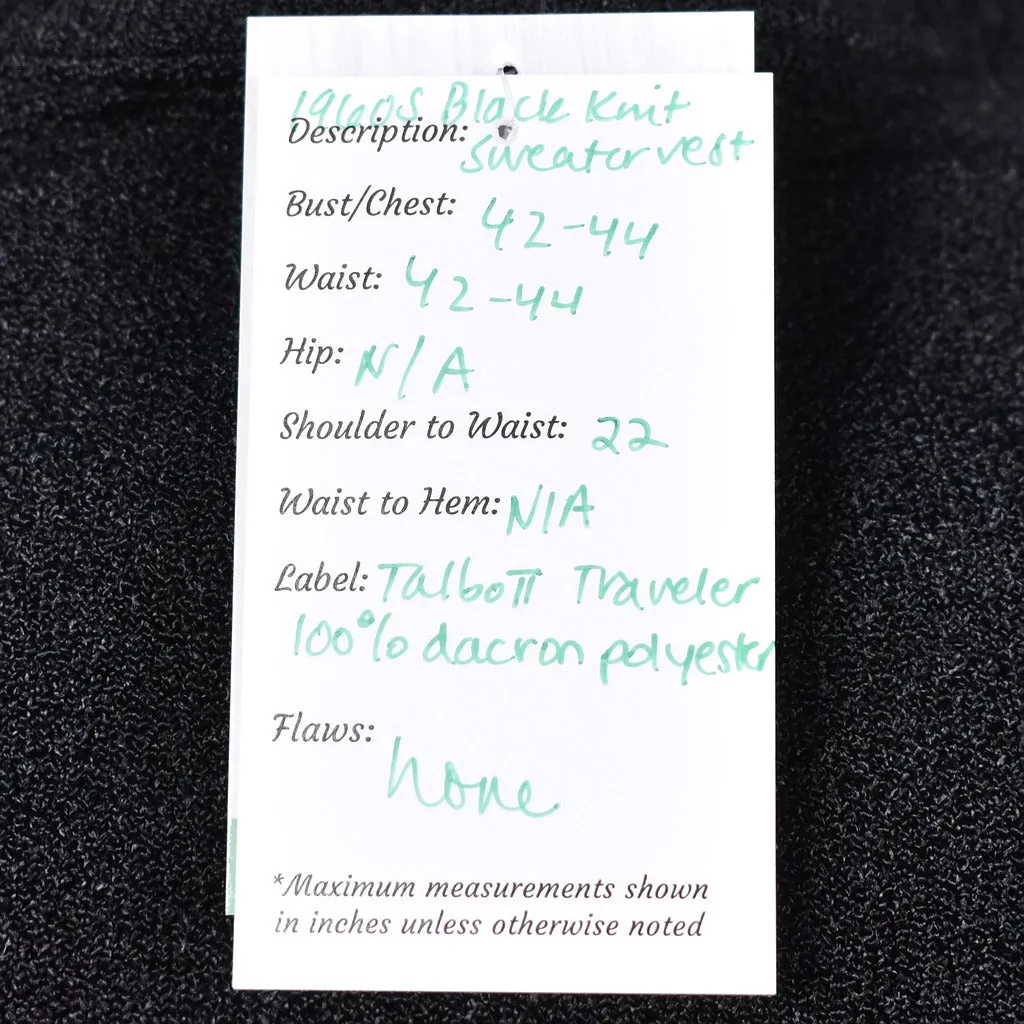 1960s Black Knit
Description: Sweater vest
Bust/Chest: 42-44
Waist: 42-44
Hip: N/A
Shoulder to Waist: 22
Waist to Hem: N/A
Label: Talbott Traveler
100% dacron polyester
Flaws:
none
*Maximum measurements shown
in inches unless otherwise noted